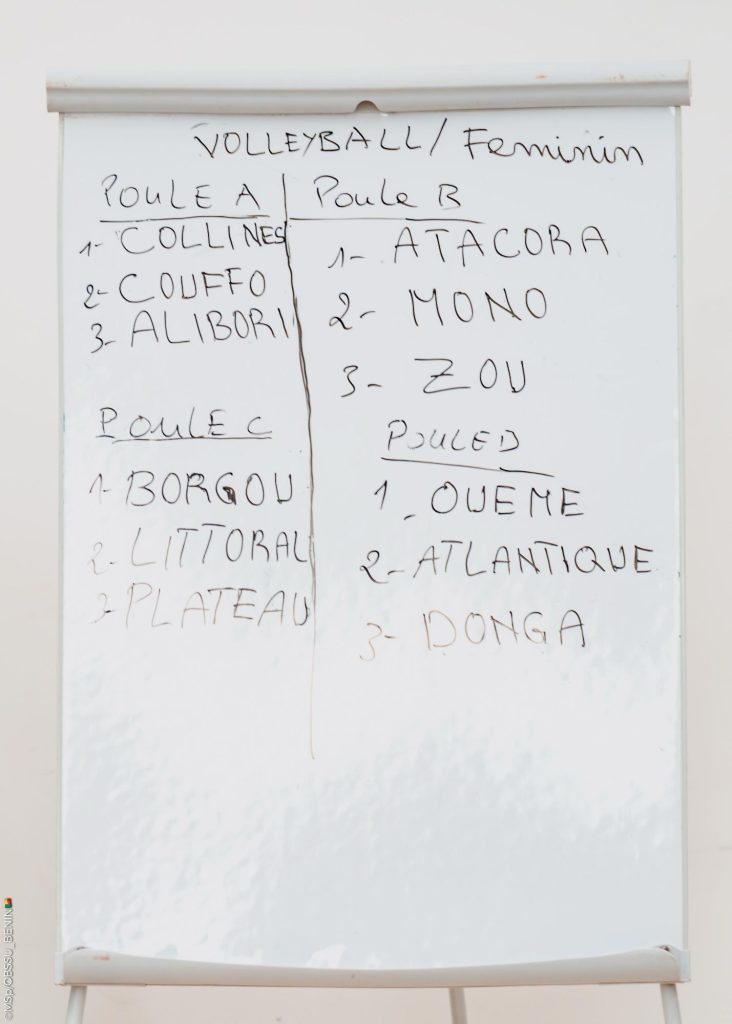 VOLLEYBALL/ Feminin
POULE A
1- COLLINES
2- COUFFO
3- ALIBORI
Poule B
1- ATACORA
2- MONO
3- ZOU
POULE C
1- BORGOU
2- LITTORAL
3- PLATEAU
POULE D
1. OUEME
2- ATLANTIQUE
3- DONGA
©MSp/OBSSU_BENIN